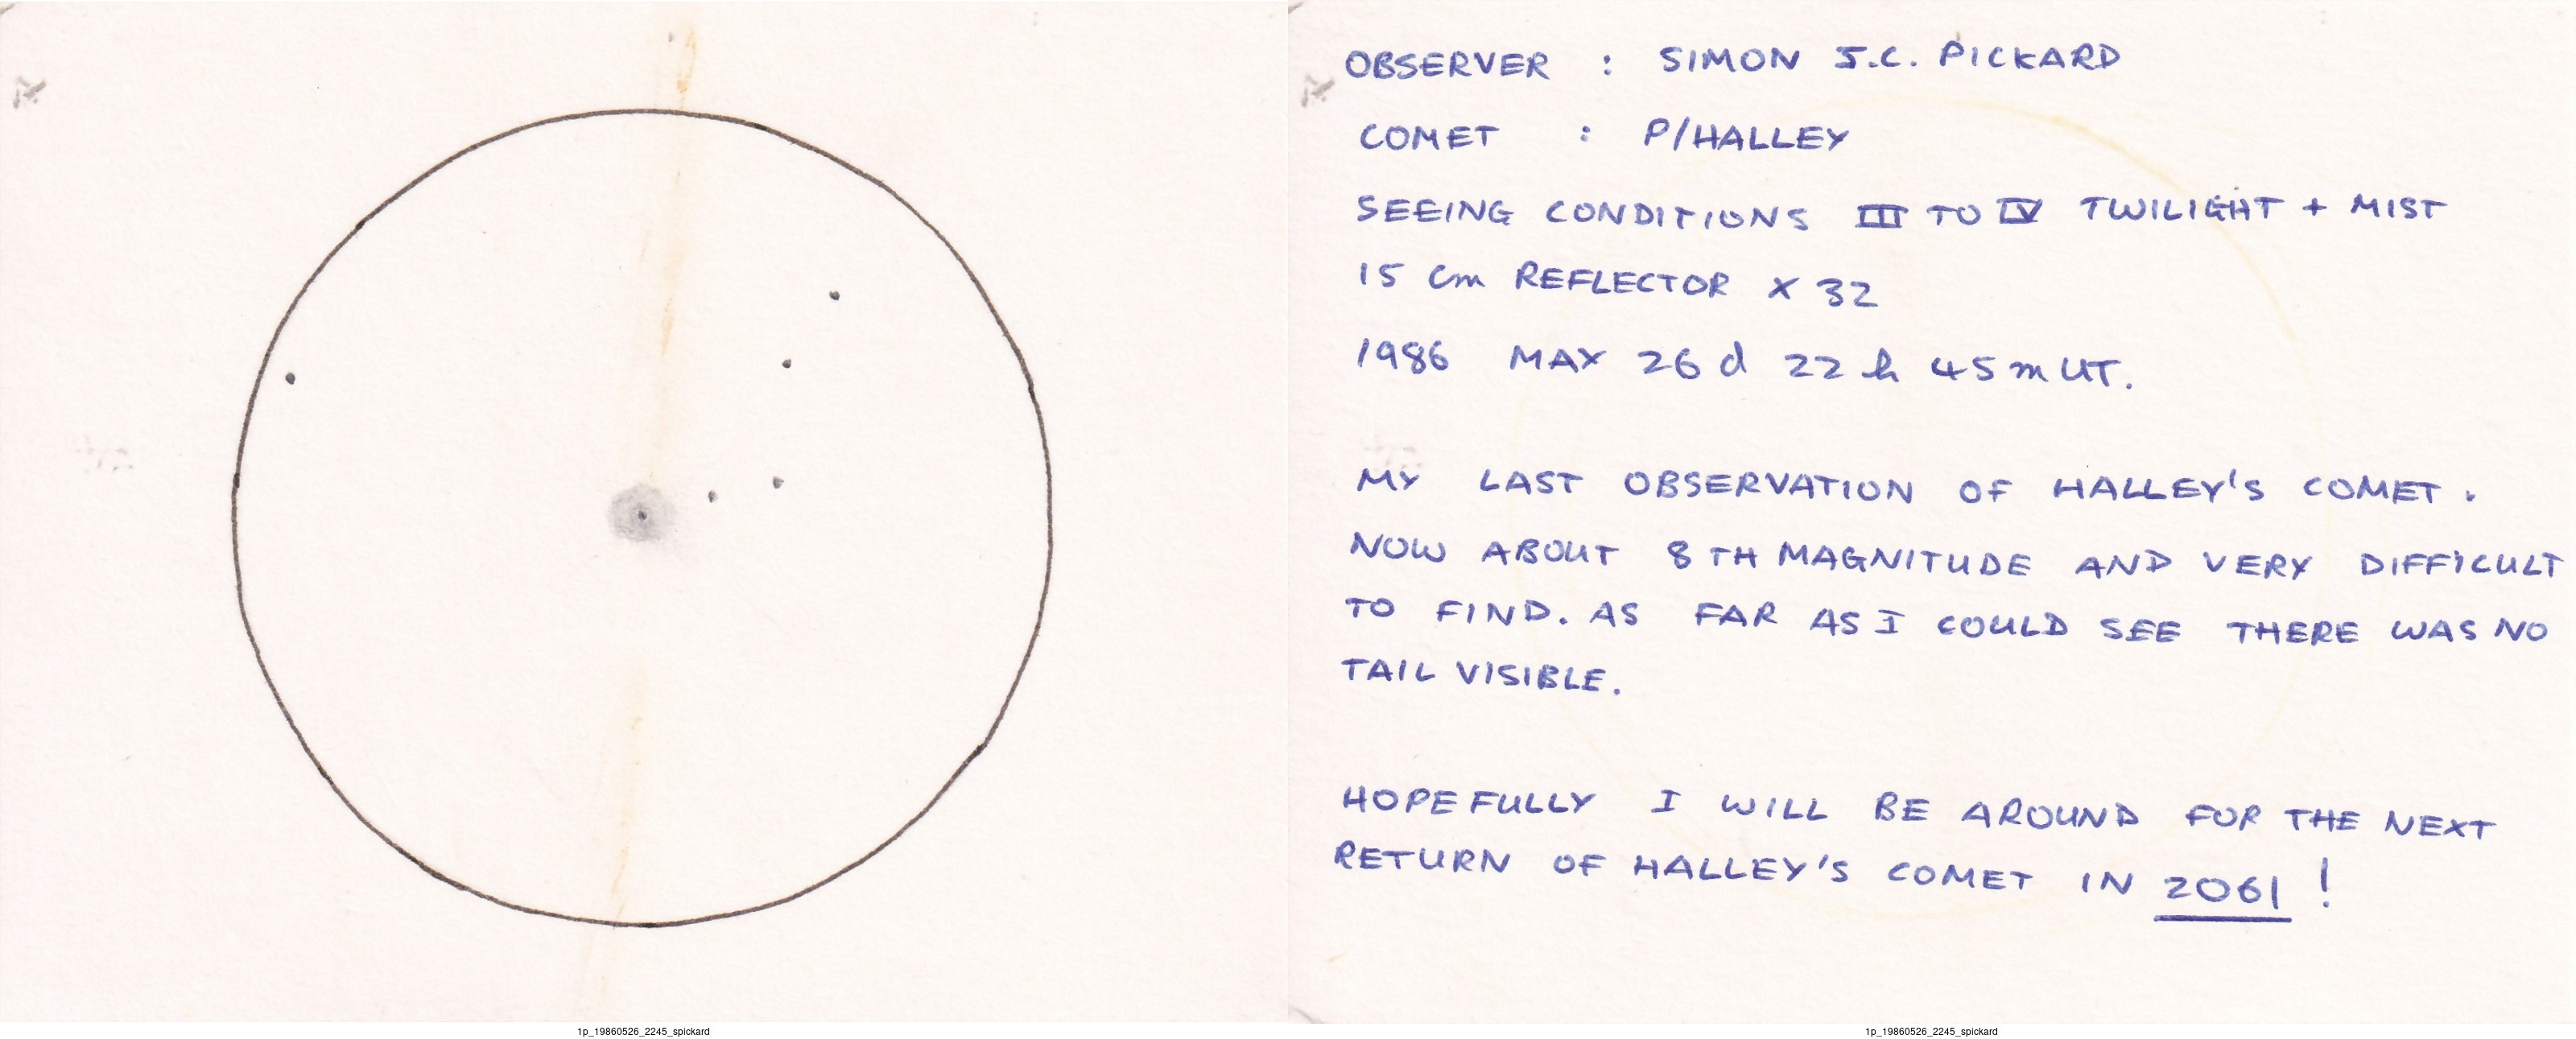 OBSERVER : SIMON J.C. PICKARD
COMET : P/HALLEY
SEEING CONDITIONS III TO IV TWILIGHT + MIST
15 cm REFLECTOR X 32
1986 MAY 26 d 22 h 45 m UT.
MY LAST OBSERVATION OF HALLEY'S COMET.
NOW ABOUT 8 TH MAGNITUDE AND VERY DIFFICULT
TO FIND. AS FAR AS I COULD SEE THERE WAS NO
TAIL VISIBLE.
HOPEFULLY I WILL BE AROUND FOR THE NEXT
RETURN OF HALLEY'S COMET IN 2061 !
1p_19860526_2245_spickard
1p_19860526_2245_spickard